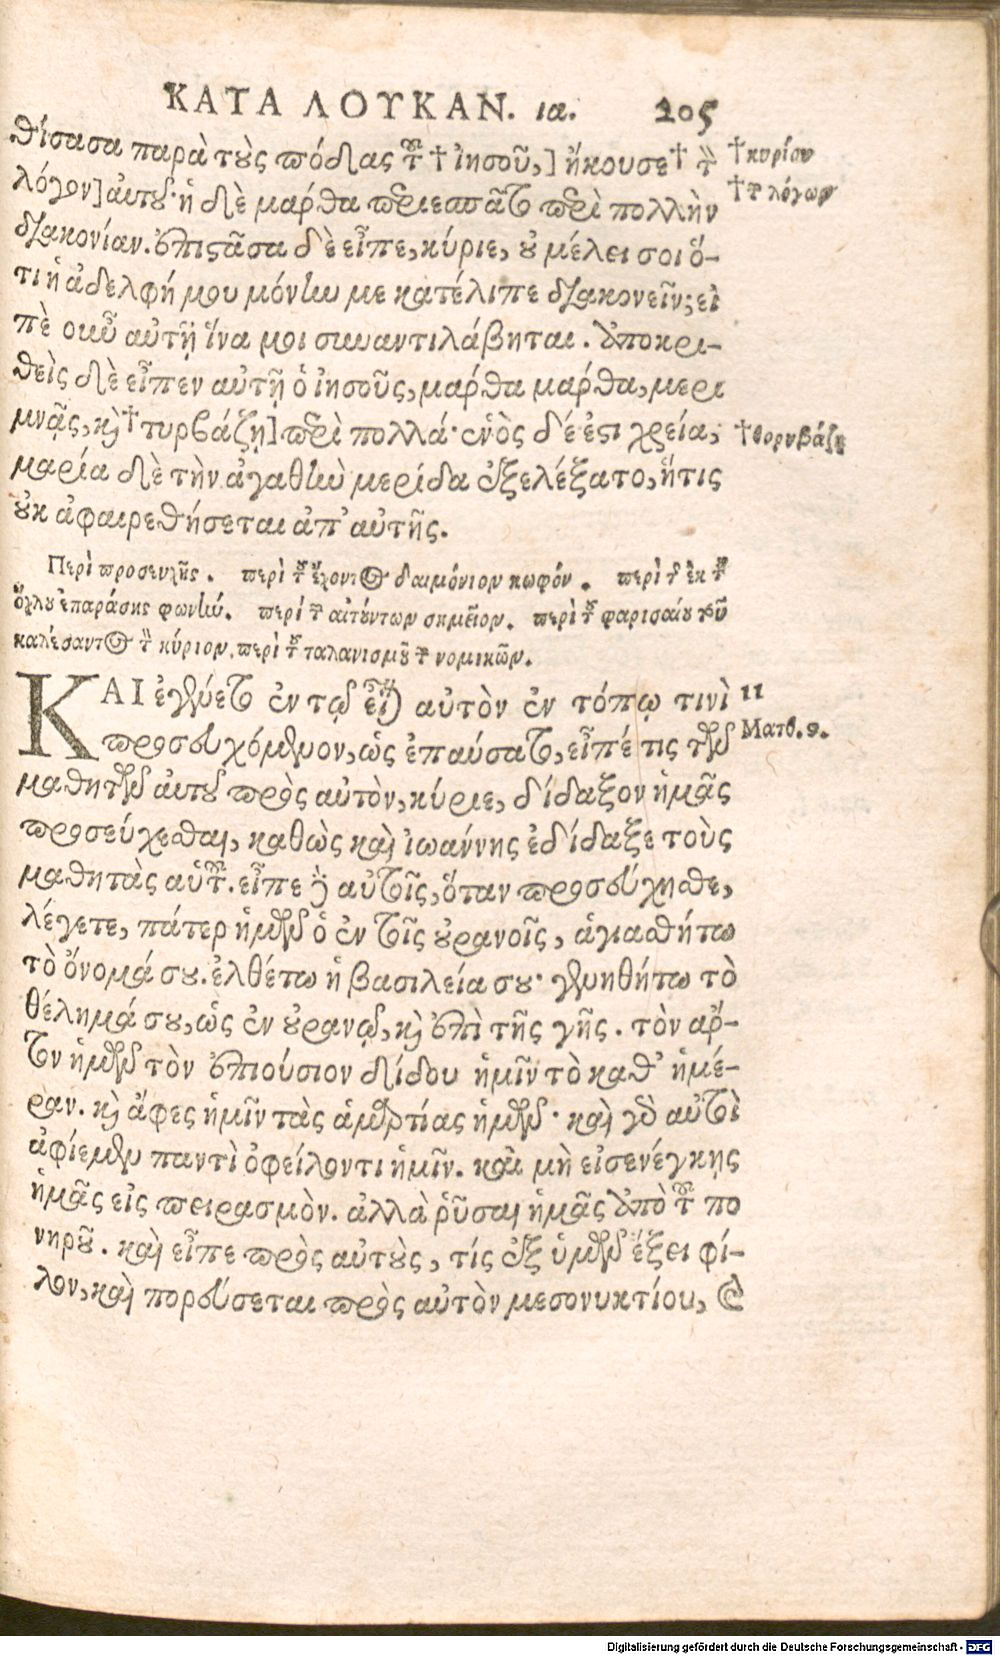 ΚΑΤΑ ΛΟΥΚΑΝ. ια. 205
θίσασα παρὰ τοὺς πόδας τοῦ † ἰησοῦ,] ἤκουσε † τὸν †κυρίου
λόγον] αὐτοῦ· ἡ δὲ μάρθα περιεσπᾶτο περὶ πολλὴν †τῶν λόγων
διακονίαν. ἐπιστᾶσα δὲ εἶπε, κύριε, οὐ μέλει σοι ὅ-
τι ἡ ἀδελφή μου μόνην με κατέλιπε διακονεῖν; εἰ
πὲ οὖν αὐτῇ ἵνα μοι συναντιλάβηται. ἀποκρι-
θεὶς δὲ εἶπεν αὐτῇ ὁ ἰησοῦς, μάρθα μάρθα, μερι
μνᾷς, καὶ †τυρβάζῃ] περὶ πολλά· ἑνὸς δέ ἐστι χρεία, †θορυβάζῃ
μαρία δὲ τὴν ἀγαθὴν μερίδα ἐξελέξατο, ἥτις
οὐκ ἀφαιρεθήσεται ἀπ' αὐτῆς.
Περὶ προσευχῆς. περὶ τοῦ ἔχοντος δαιμόνιον κωφόν. περὶ τῆς ἐκ τοῦ
ὄχλου ἐπαράσης φωνήν. περὶ τῶν αἰτούντων σημεῖον. περὶ τοῦ φαρισαίου τοῦ
καλέσαντος τὸν κύριον. περὶ τοῦ ταλανισμοῦ τῶν νομικῶν.
ΚΑΙ ἐγένετο ἐν τῷ εἶναι αὐτὸν ἐν τόπῳ τινὶ 11
προσευχόμενον, ὡς ἐπαύσατο, εἶπέ τις τῶν Ματθ. 9.
μαθητῶν αὐτοῦ πρὸς αὐτὸν, κύριε, δίδαξον ἡμᾶς
προσεύχεσθαι, καθὼς καὶ ἰωάννης ἐδίδαξε τοὺς
μαθητὰς αὑτοῦ. εἶπε δὲ αὐτοῖς, ὅταν προσεύχησθε,
λέγετε, πάτερ ἡμῶν ὁ ἐν τοῖς οὐρανοῖς, ἁγιασθήτω
τὸ ὄνομά σου. ἐλθέτω ἡ βασιλεία σου· γενηθήτω τὸ
θέλημά σου, ὡς ἐν οὐρανῷ, καὶ ἐπὶ τῆς γῆς. τὸν ἄρ-
τον ἡμῶν τὸν ἐπιούσιον δίδου ἡμῖν τὸ καθ' ἡμέ-
ραν. καὶ ἄφες ἡμῖν τὰς ἁμαρτίας ἡμῶν· καὶ γὰρ αὐτοὶ
ἀφίεμεν παντὶ ὀφείλοντι ἡμῖν. καὶ μὴ εἰσενέγκῃς
ἡμᾶς εἰς πειρασμὸν. ἀλλὰ ῥῦσαι ἡμᾶς ἀπὸ τοῦ πο
νηροῦ. καὶ εἶπε πρὸς αὐτοὺς, τίς ἐξ ὑμῶν ἕξει φί-
λον, καὶ πορεύσεται πρὸς αὐτὸν μεσονυκτίου, καὶ
Digitalisierung gefördert durch die Deutsche Forschungsgemeinschaft - DFG